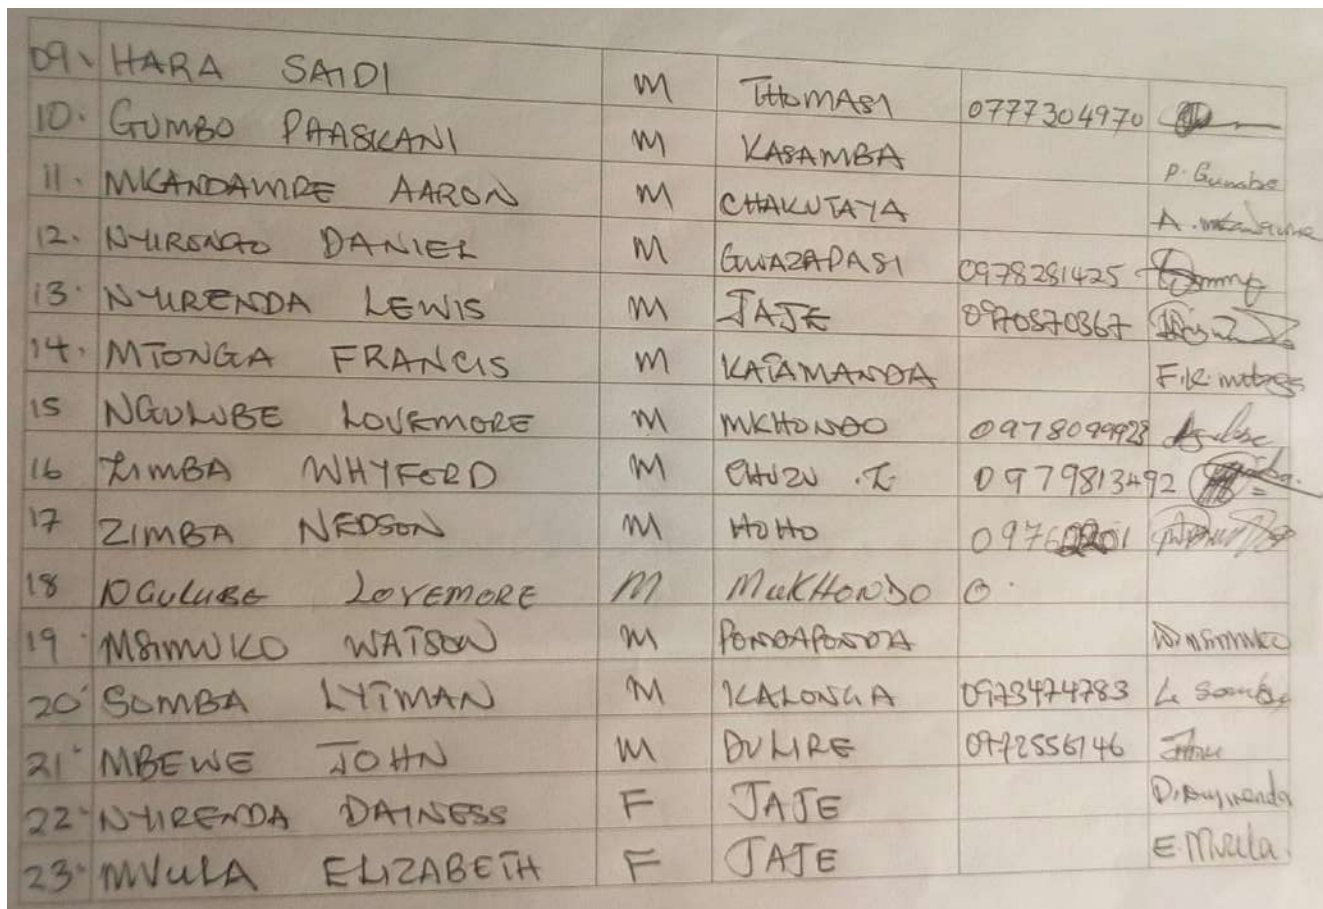 09. HARA SAIDI M THOMASI 0777304970
10. GUMBO PAASKANI M KASAMBA P. Gumbo
11. MKANDAWIRE AARON M CHAKUTAYA A. Mkandawire
12. NYIRONGO DANIEL M GWAZAPASI 0978281425
13. NYIRENDA LEWIS M JAJE 0970570367
14. MTONGA FRANCIS M KATAMANDA
15 NGULUBE LOVEMORE M MKHONDO 0978099923
16 ZIMBA WHYFORD M CHUZU .Z 0979813492
17 ZIMBA NEDSON M HOHO
18 NGULUBE LOVEMORE M MUKHONDO 0.
19. MSIMUKO WATSON M PONDAPONDA W. MSIMUKO
20. SOMBA LYTMAN M KALONGA 0973474783 L. Somba
21. MBEWE JOHN M DULIRE 0972556146
22. NYIRENDA DAINESS F JAJE D. Nyirenda
23. MVULA ELIZABETH F JAJE E. Mvula.